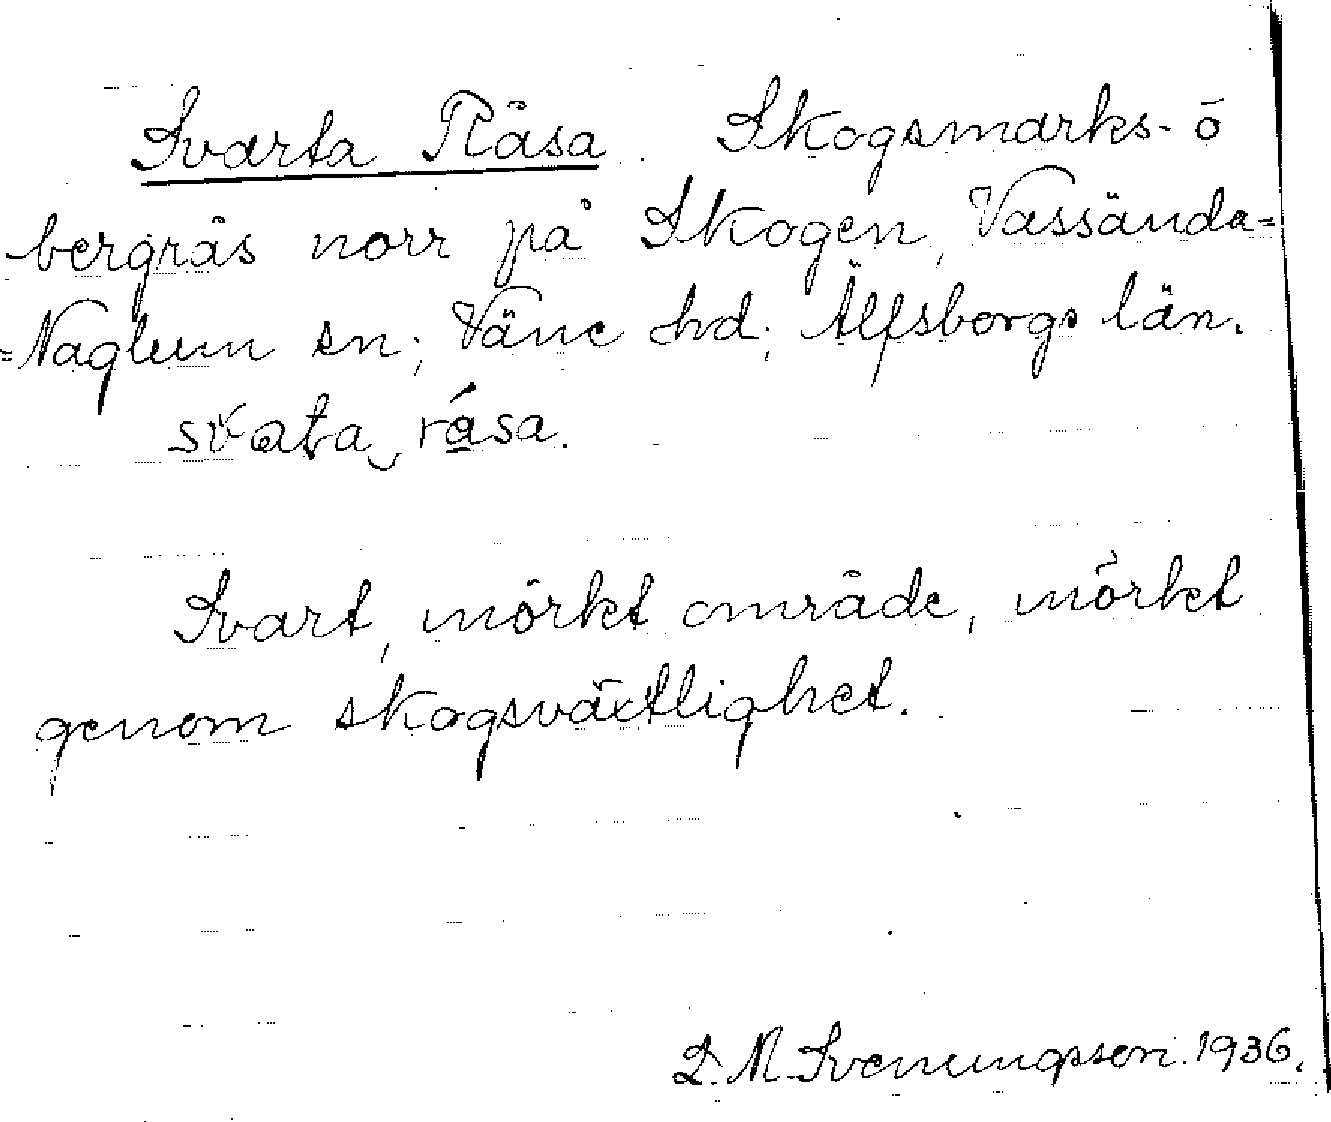 Svarta Råsa. Skogsmarks- o
bergrås norr på Skogen, Vassända-
-Naglum sn; Väne hd; Älfsborgs län.
svata råsa.
Svart, mörkt område, mörkt
genom skogsväxtlighet.
D. N. Svenungsson. 1936.